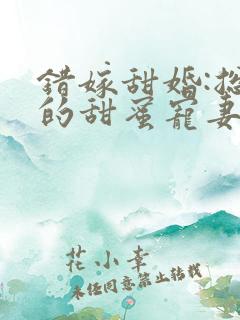 错嫁甜婚:总
的甜蜜宠妻
花小幸
未经同意禁止转载